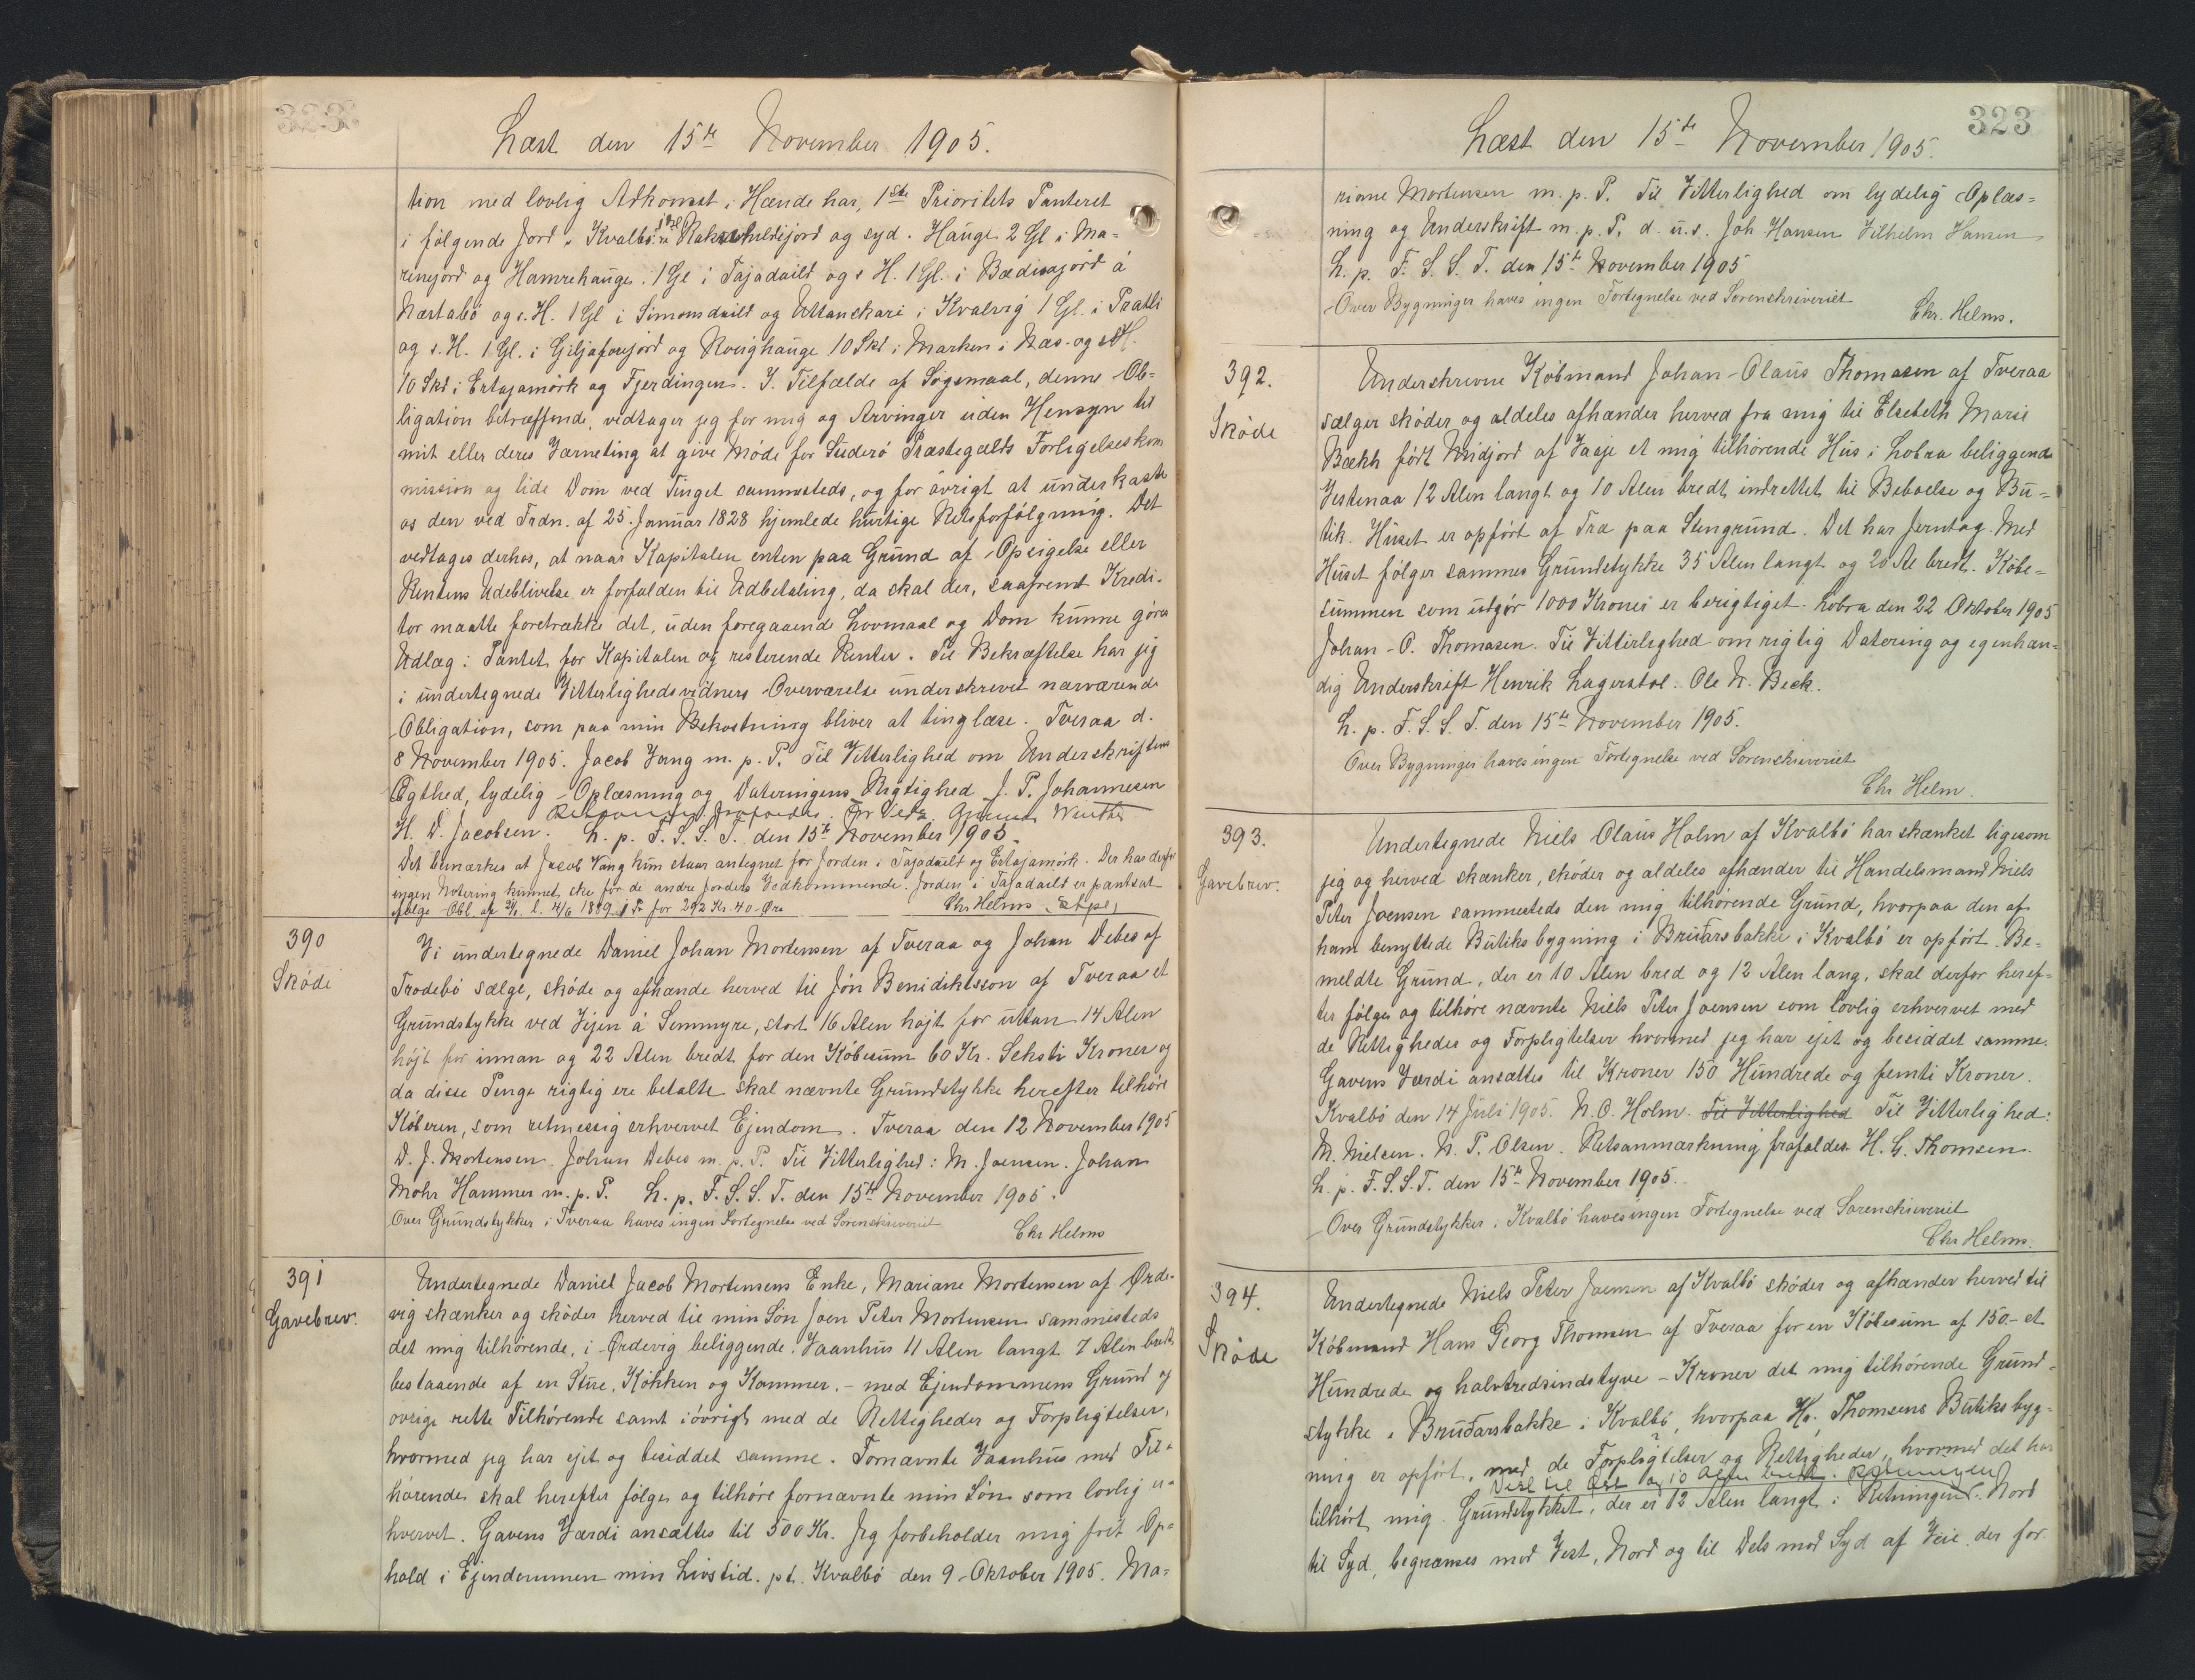 323
Læst den 15de November 1905.
tion med lovlig Adkomst i Hænde har, 1ste Prioritets Panteret
i følgende Jord i Kvalbø: og syd. Hauge 2 Gl i Ma-
renejord og Hamrehauge. 1 Gl i Tajadailt og s. H. 1 Gl. i Bædisajord á
Nestabø og s. H. 1 Gl i Simonsdailt og Uttanskari i Kvalvig 1 Gl. i Pratli
og s. H. 1 Gl. i Giljafossjord og Rossighauge 10 Skd i Marken i Næs og s H.
10 Skd i Ertajamørk og Fjerdingen. I Tilfælde af Søgsmaal, denne Ob-
ligation betræffende, vedtager jeg for mig og Arvinger uden Hensyn til
mit eller deres Værneting at give Møde for Suderø Præstegælds Forligelseskom
mission og lide Dom ved Tinget sammesteds, og for øvrigt at underkaste
os den ved Frdn. af 25. Januar 1828 hjemlede hurtige Retsforfølgning. Det
vedtages derhos, at naar Kapitalen enten paa Grund af Opsigelse eller
Rentens Udeblivelse er forfalden til Udbetaling, da skal der, saafremt Kredi-
tor maatte foretrække det, uden foregaaende Lovmaal og Dom kunne gøres
Udlæg i Pantet for Kapitalen og resterende Renter. Til Bekræftelse har jeg
i undertegnede Vitterlighedsvidners Overværelse underskrevet nærværende
Obligation, som paa min Bekostning bliver at tinglæse. Tveraa d.
8 November 1905. Jacob Vang m. p. P. Til Vitterlighed om Underskriftens
Ægthed, lydelig Oplæsning og Dateringens Rigtighed J. P. Johannesen
Winther
H. D. Jacobsen. L. p. F. S. S. T. den 15de November 1905.
Det bemærkes at Jacob Vang kun staar antegnet for Jorden i Tajadailt og Ertajamørk. Der har derfor
ingen Notering kunnet ske for de andre Jorders Vedkommende. Jorden i Tajadailt er pantsat
ifølge Obl. af 21/1 l. 4/6 1889 for 292 Kr. 40 Øre Chr Helms
390
Skøde
Vi undertegnede Daniel Johan Mortensen af Tveraa og Johan Debes af
Frodebø sælge, skøde og afhænde herved til Jón Benidiktsson af Tveraa et
Grundstykke ved Vejen á Semmyre, stort 16 Alen højt for uttan 14 Alen
højt for innan og 22 Alen bredt for den Købesum 60 Kr. Seksti Kroner og
da disse Penge rigtig ere betalte skal nævnte Grundstykke herefter tilhøre
Køberen, som retmessig erhvervet Ejendom. Tveraa den 12 November 1905
D. J. Mortensen. Johan Debes m. p. P. Til Vitterlighed: M. Joensen. Johan
Mohr Hammer m. p. P. L. p. F. S. S. T. den 15de November 1905.
Over Grundstykker i Tveraa haves ingen Fortegnelse ved Sorenskriveriet
Chr Helms
391
Gavebrev.
Undertegnede Daniel Jacob Mortensens Enke, Mariane Mortensen af Ørde-
vig skænker og skøder herved til min Søn Joen Peter Mortensen sammesteds
det mig tilhørende, i Ørdevig beliggende Vaanhus 11 Alen langt 7 Alen bredt
bestaaende af en Stue, Køkken og Kammer, - med Ejendommens Grund og
øvrige rette Tilhørende samt iøvrigt med de Rettigheder og Forpligtelser,
hvormed jeg har ejet og besiddet samme. Fornævnte Vaanhus med Til-
hørende skal herefter følge og tilhøre fornævnte min Søn som lovlig er-
hvervet. Gavens Værdi ansættes til 500 Kr. Jeg forbeholder mig frit Op-
hold i Ejendommen min Livstid. pt. Kvalbø den 9 Oktober 1905. Ma-
323
Læst den 15de November 1905.
riane Mortensen m. p. P. Til Vitterlighed om lydelig Oplæs-
ning og Underskrift m. p. P. d. u. s. Joh Hansen Vilhelm Hansen
L. p. F. S. S. T. den 15de November 1905
Over Bygninger haves ingen Fortegnelse ved Sorenskriveriet
Chr. Helms.
392.
Skøde
Underskrevne Købmand Johan Olaus Thomasen af Tveraa
sælger skøder og aldeles afhænder herved fra mig til Elsebeth Marie
Bækk født Midjord af Vaaje et mig tilhørende Hus i Lobra beliggende
Vestenaa 12 Alen langt og 10 Alen bredt indrettet til Beboelse og Bu-
tik. Huset er opført af Træ paa Stengrund. Det har Jerntag. Med
Huset følger sammes Grundstykke 35 Alen langt og 20 Al bredt. Købe-
summen som udgør 1000 Kroner er berigtiget. Lobra den 22 Oktober 1905
Johan O. Thomasen. Til Vitterlighed om rigtig Datering og egenhæn-
dig Underskrift Henrik Lagerstol. Ole N. Beck.
L. p. F. S. S. T. den 15de November 1905.
Over Bygninger haves ingen Fortegnelse ved Sorenskriveriet
Chr Helm.
393.
Gavebrev.
Undertegnede Niels Olaus Holm af Kvalbø har skænket ligesom
jeg og herved skænker, skøder og aldeles afhænder til Handelsmand Niels
Peter Joensen sammesteds den mig tilhørende Grund, hvorpaa den af
ham benyttede Butiksbygning i Bruđarsbakke i Kvalbø er opført. Be-
meldte Grund, der er 10 Alen bred og 12 Alen lang, skal derfor heref-
ter følge og tilhøre nævnte Niels Peter Joensen som lovlig erhvervet med
de Rettigheder og Forpligtelser hvormed jeg har ejet og besiddet samme.
Gavens Værdi ansættes til Kroner 150 Hundrede og femti Kroner.
Kvalbø den 14 Juli 1905. N. O. Holm. Til Vitterlighed Til Vitterlighed:
M. Nielsen. N. P. Olsen. Retsanmærkning frafaldes H. G. Thomsen.
L. p. F. S. S. T. den 15de November 1905.
Over Grundstykker i Kvalbø haves ingen Fortegnelse ved Sorenskriveriet
Chr Helms.
394.
Skøde
Undertegnede Niels Peter Joensen af Kvalbø skøder og afhænder herved til
Købmand Hans Georg Thomsen af Tveraa for en Købesum af 150 - et
Hundrede og halvtredsindstyve - Kroner det mig tilhørende Grund-
stykke i Bruđarsbakke i Kvalbø, hvorpaa Hr. Thomsens Butiksbyg-
ning er opført, med de Forpligtelser og Rettigheder, hvormed det har
Vest til Øst og 10 Alen bredt i Retningen
tilhørt mig. Grundstykket, der er 12 Alen langt i Retningen Nord
til Syd, begrænses mod Vest, Nord og til Dels mod Syd af Veie, der for